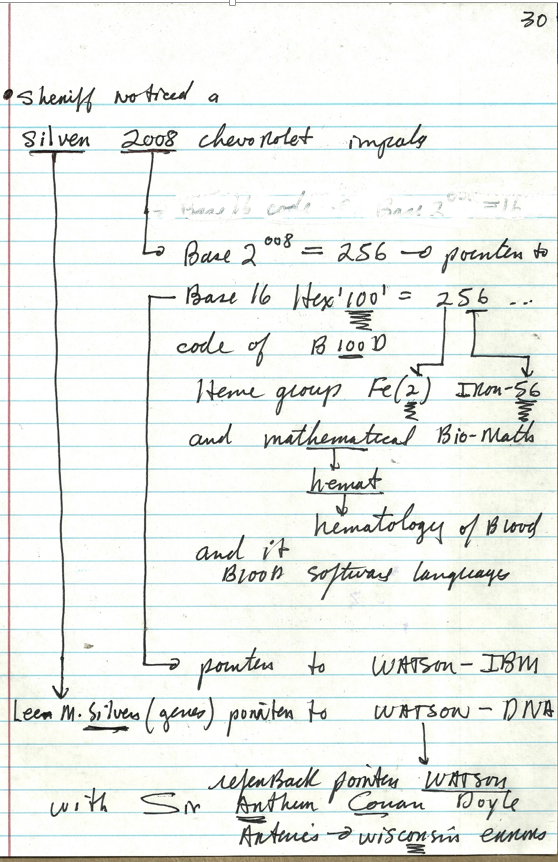 30
• Sheriff noticed a
Silver 2008 chevorolet impala
Base 16 code Base 2 = 16
Base 2^008 = 256 → pointer to
Base 16 Hex '100' = 256 ...
code of B 100 D
Heme group Fe(2) Iron-56
and mathematical Bio-Math
hemat
hematology of Blood
and it
B100D software languages
pointer to WATSON-IBM
Leem M. Silver (genes) pointer to WATSON-DNA
referBack pointer WATSON
with Sir Anthur Conan Doyle
Arteris → wisconsin errors